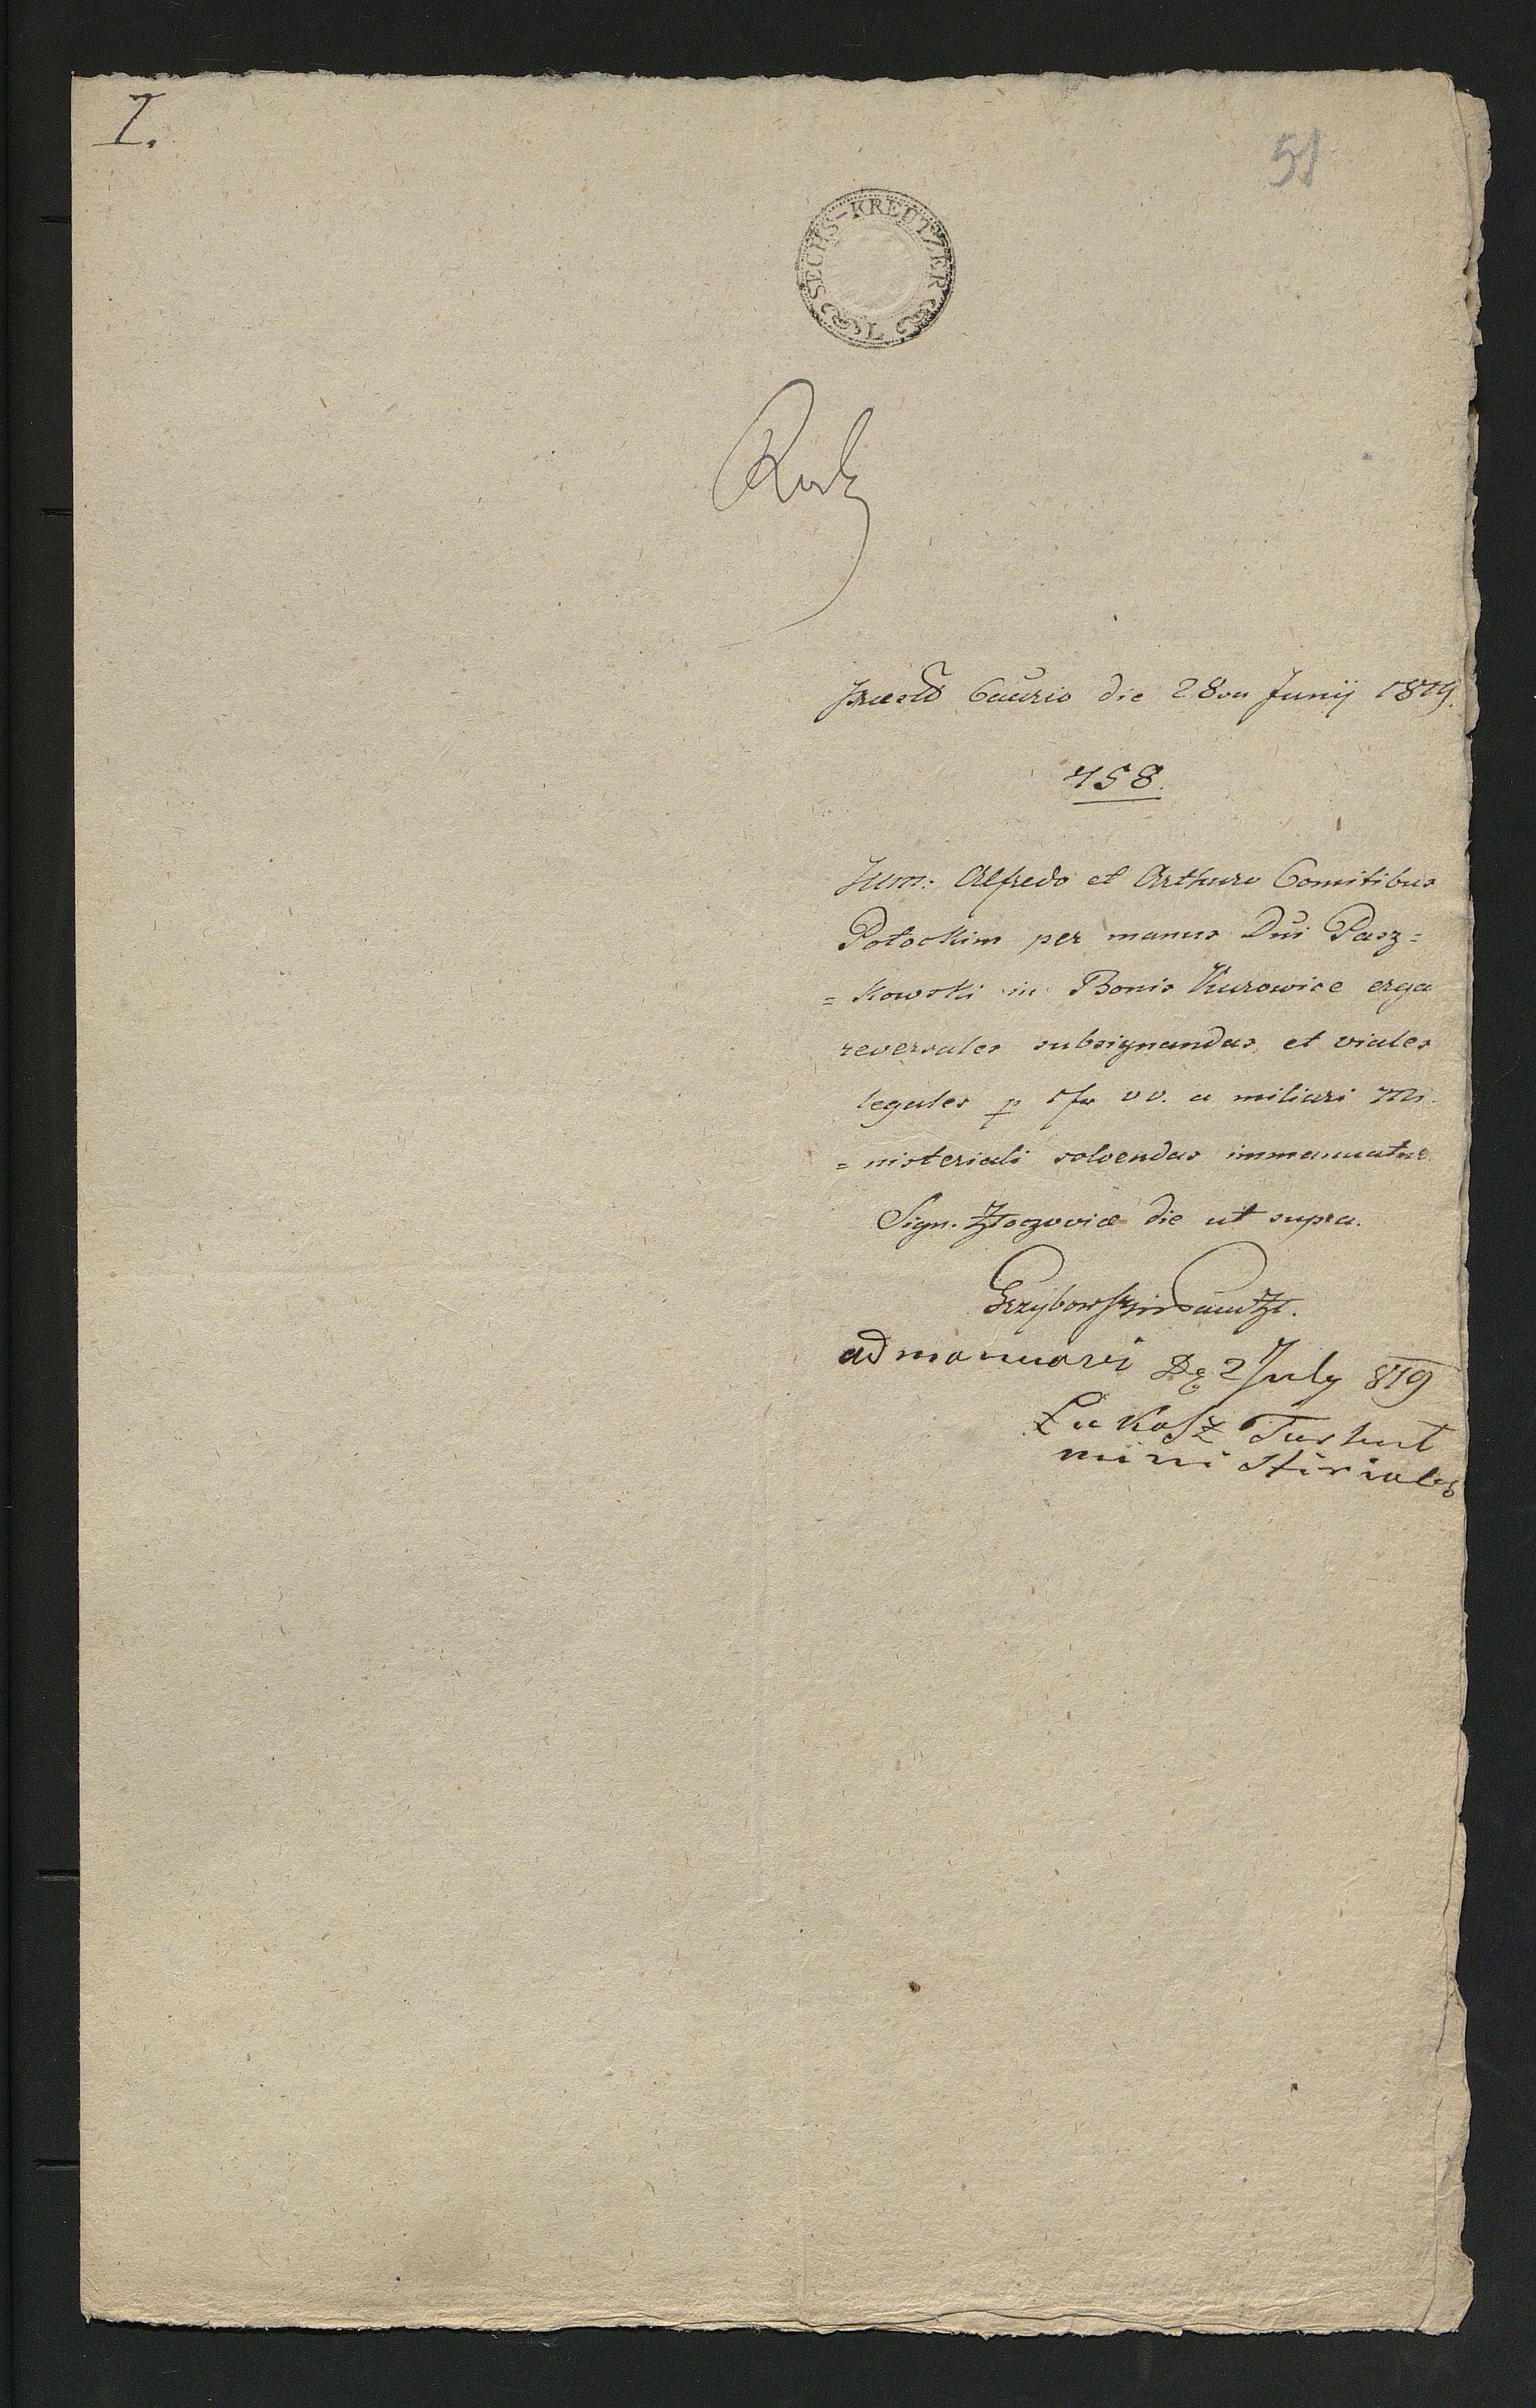 I.
51
SECHS-KREUTZER
Rub
die 28va Junij 1819.
458.
Alfredo et Arthuro Comitibus
Potockim per manus Dni Pasz=
=kowski in Bonis Kurowice erga
reversales subsignandas, et viales
legales p 1/m vv. a miliari Mi.
=nisteriali solvendas immanuatur.
Sign. Złoczoviæ die ut supra.
Grzybowski
admanuavi Dg 2 July 819
Łukasz Turkut
ministirialis